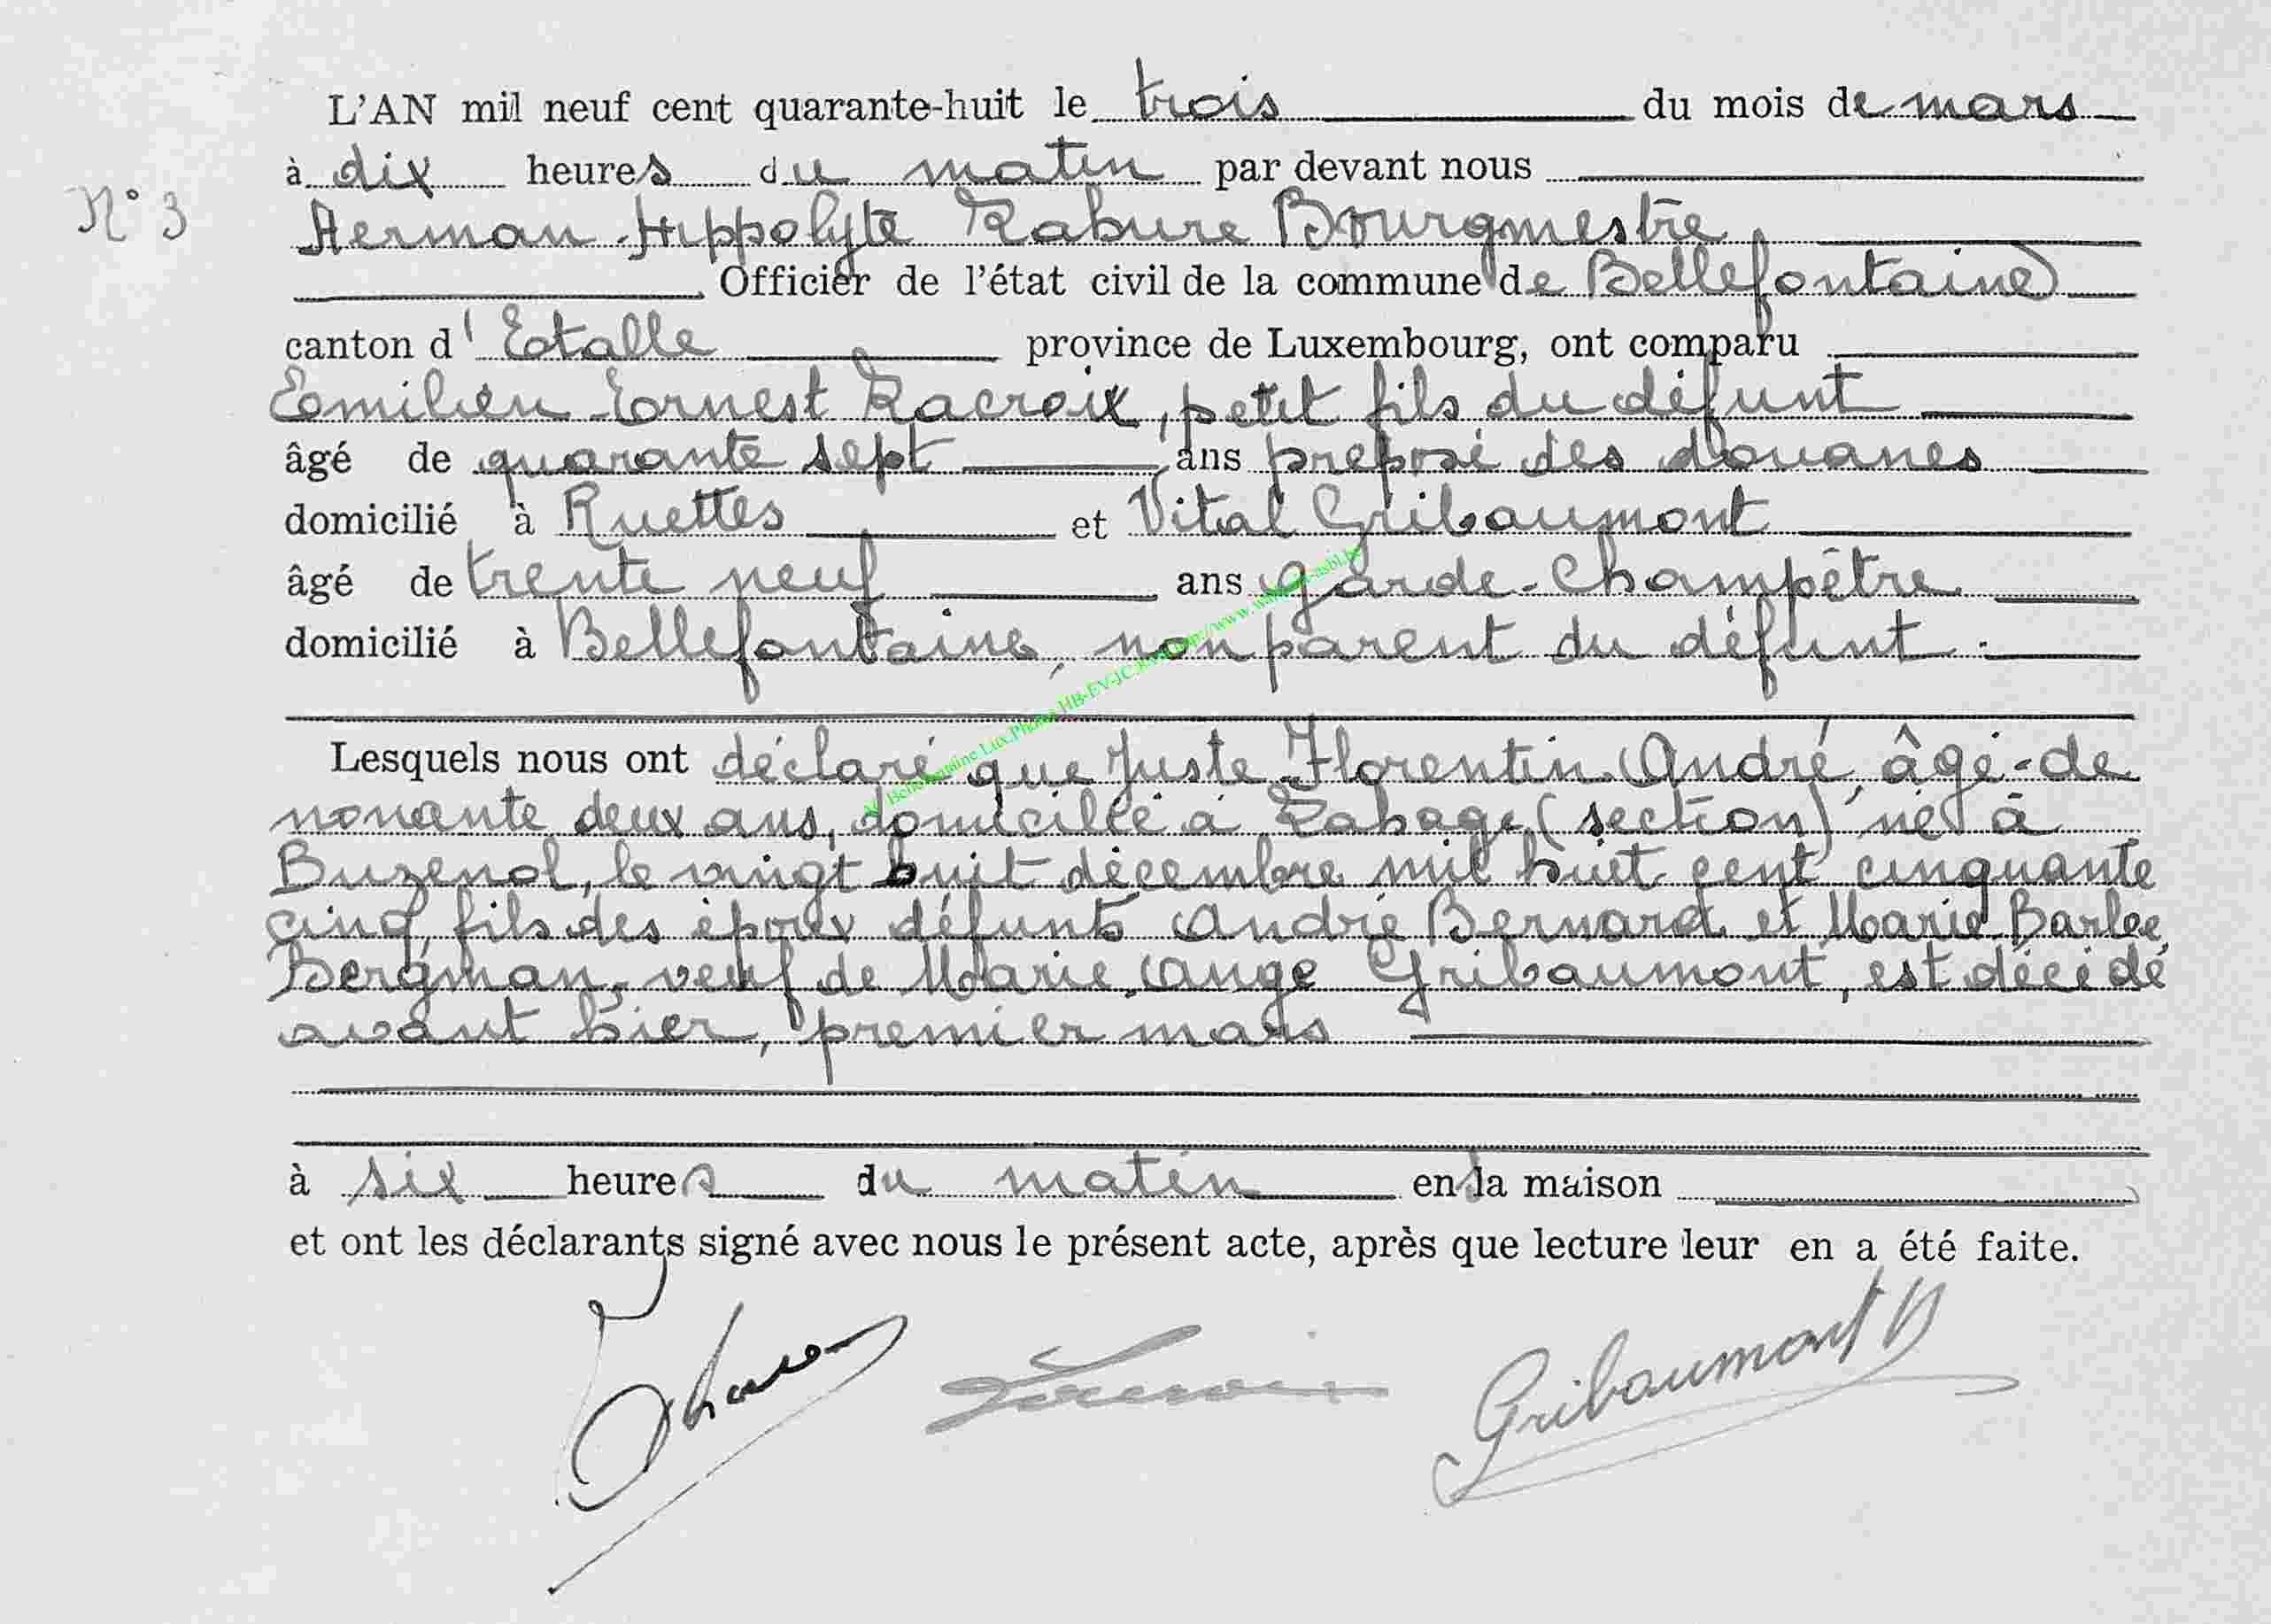 L'AN mil neuf cent quarante-huit le trois du mois de mars
à dix heures du matin par devant nous
N° 3
Herman Hippolyte Labure Bourgmestre
Officier de l'état civil de la commune de Bellefontaine
canton d'Etalle province de Luxembourg, ont comparu
Emilien Ernest Lacroix, petit fils du défunt
âgé de quarante sept ans préposé des douanes
domicilié à Ruettes et Vital Gribaumont
âgé de trente neuf ans garde-champêtre
domicilié à Bellefontaine, non parent du défunt.
Lesquels nous ont déclaré que Juste Florentin André, âgé de
nonante deux ans, domicilié à Lahage (section) né à
Buzenol, le vingt huit décembre mil huit cent cinquante
cinq, fils des époux défunts André Bernard et Marie Barbe
Bergman, veuf de Marie Ange Gribaumont, est décédé
avant hier, premier mars
à six heures du matin en la maison
et ont les déclarants signé avec nous le présent acte, après que lecture leur en a été faite.
Gribaumont V